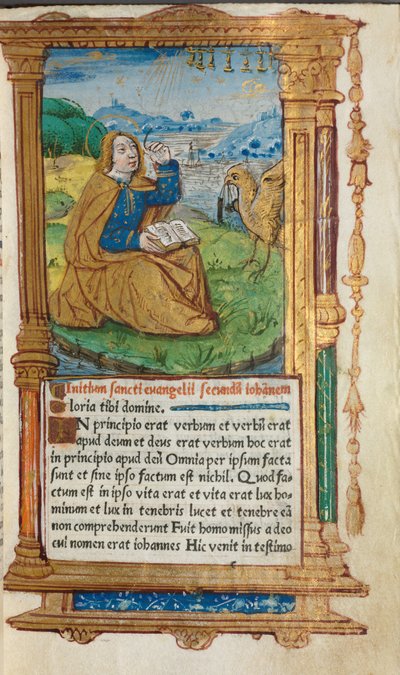 Initium sancti evangelii secundũ iohãnem
Gloria tibi domine.
IN principio erat verbum et verbũ erat
apud deum et deus erat verbum hoc erat
in principio apud deũ Omnia per ipsum facta
sunt et sine ipso factum est nichil. Quod fa-
ctum est in ipso vita erat et vita erat lux ho-
minum et lux in tenebris lucet et tenebre eã
non comprehenderunt Fuit homo missus a deo
cui nomen erat iohannes Hic venit in testimo